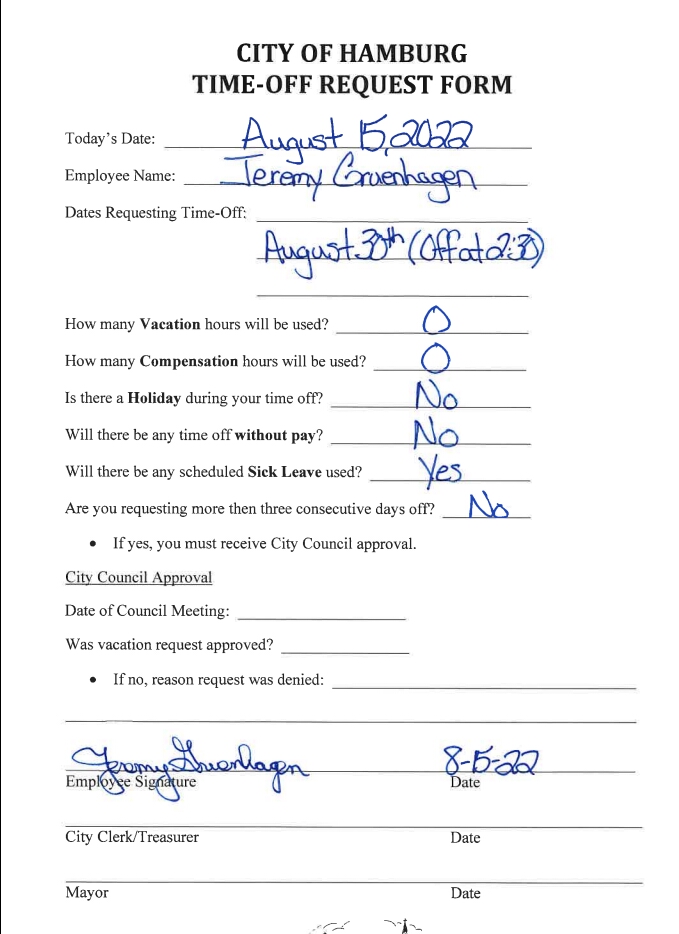 CITY OF HAMBURG
TIME-OFF REQUEST FORM
Today's Date: August 15, 2022
Employee Name: Jeremy Gruenhagen
Dates Requesting Time-Off:
August 30th (Off at 2:30)
How many Vacation hours will be used? 0
How many Compensation hours will be used? 0
Is there a Holiday during your time off? No
Will there be any time off without pay? No
Will there be any scheduled Sick Leave used? Yes
Are you requesting more then three consecutive days off? No
• If yes, you must receive City Council approval.
City Council Approval
Date of Council Meeting:
Was vacation request approved?
• If no, reason request was denied:
Jeremy Gruenhagen 8-15-22
Employee Signature Date
City Clerk/Treasurer Date
Mayor Date